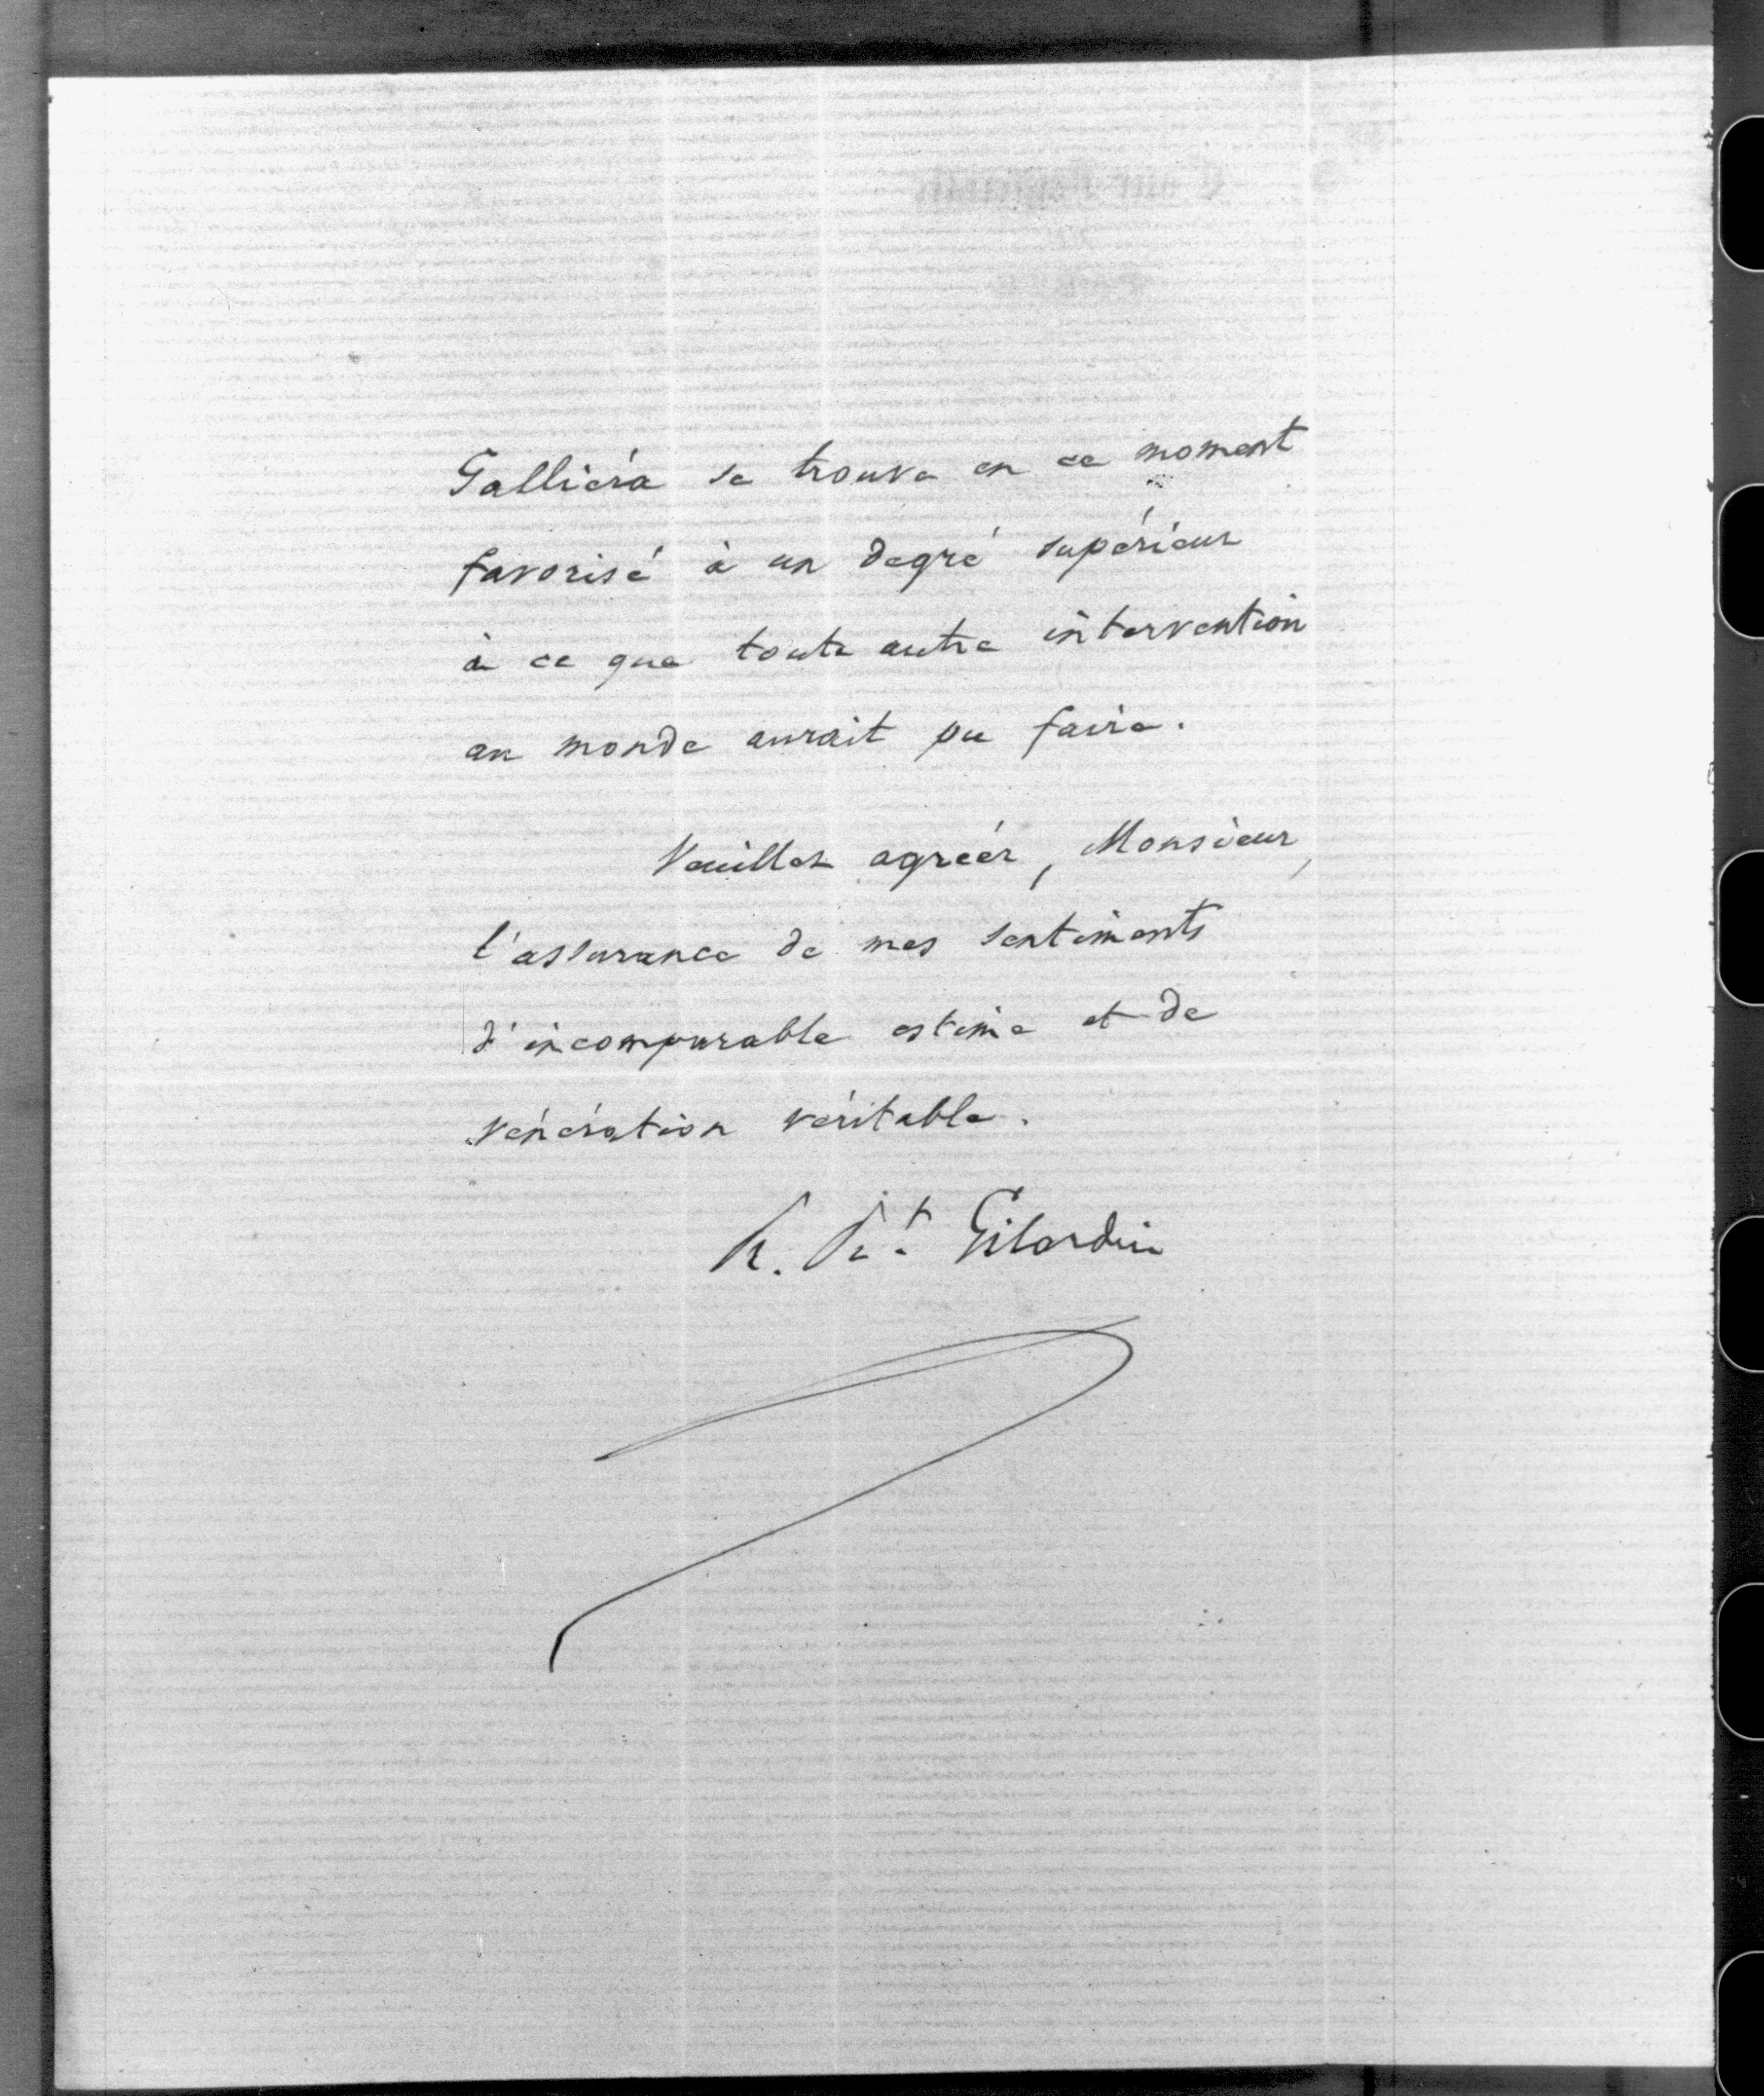 Galliéra se trouve en ce moment
favorisé à un degré supérieur
à ce que toute autre intervention
au monde aurait pu faire.
Veuillez agréer, Monsieur,
l'assurance de mes sentiments
d'incomparable estime et de
vénération véritable.
Gilardin